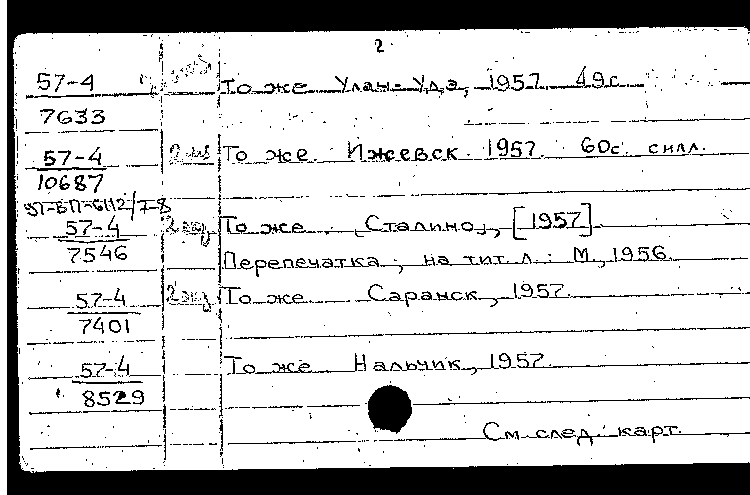 2
57-4 То же Улан-Удэ, 1957. 49с
7633
57-4 То же. Ижевск 1957. 60с. силл.
10687
57-4 2 экз То же. [Сталино], [1957].
7546 Перепечатка; на тит. л.: М., 1956.
57-4 2 экз То же Саранск, 1957.
7401
57-4 То же Нальчик, 1957.
8529
См. след. карт.